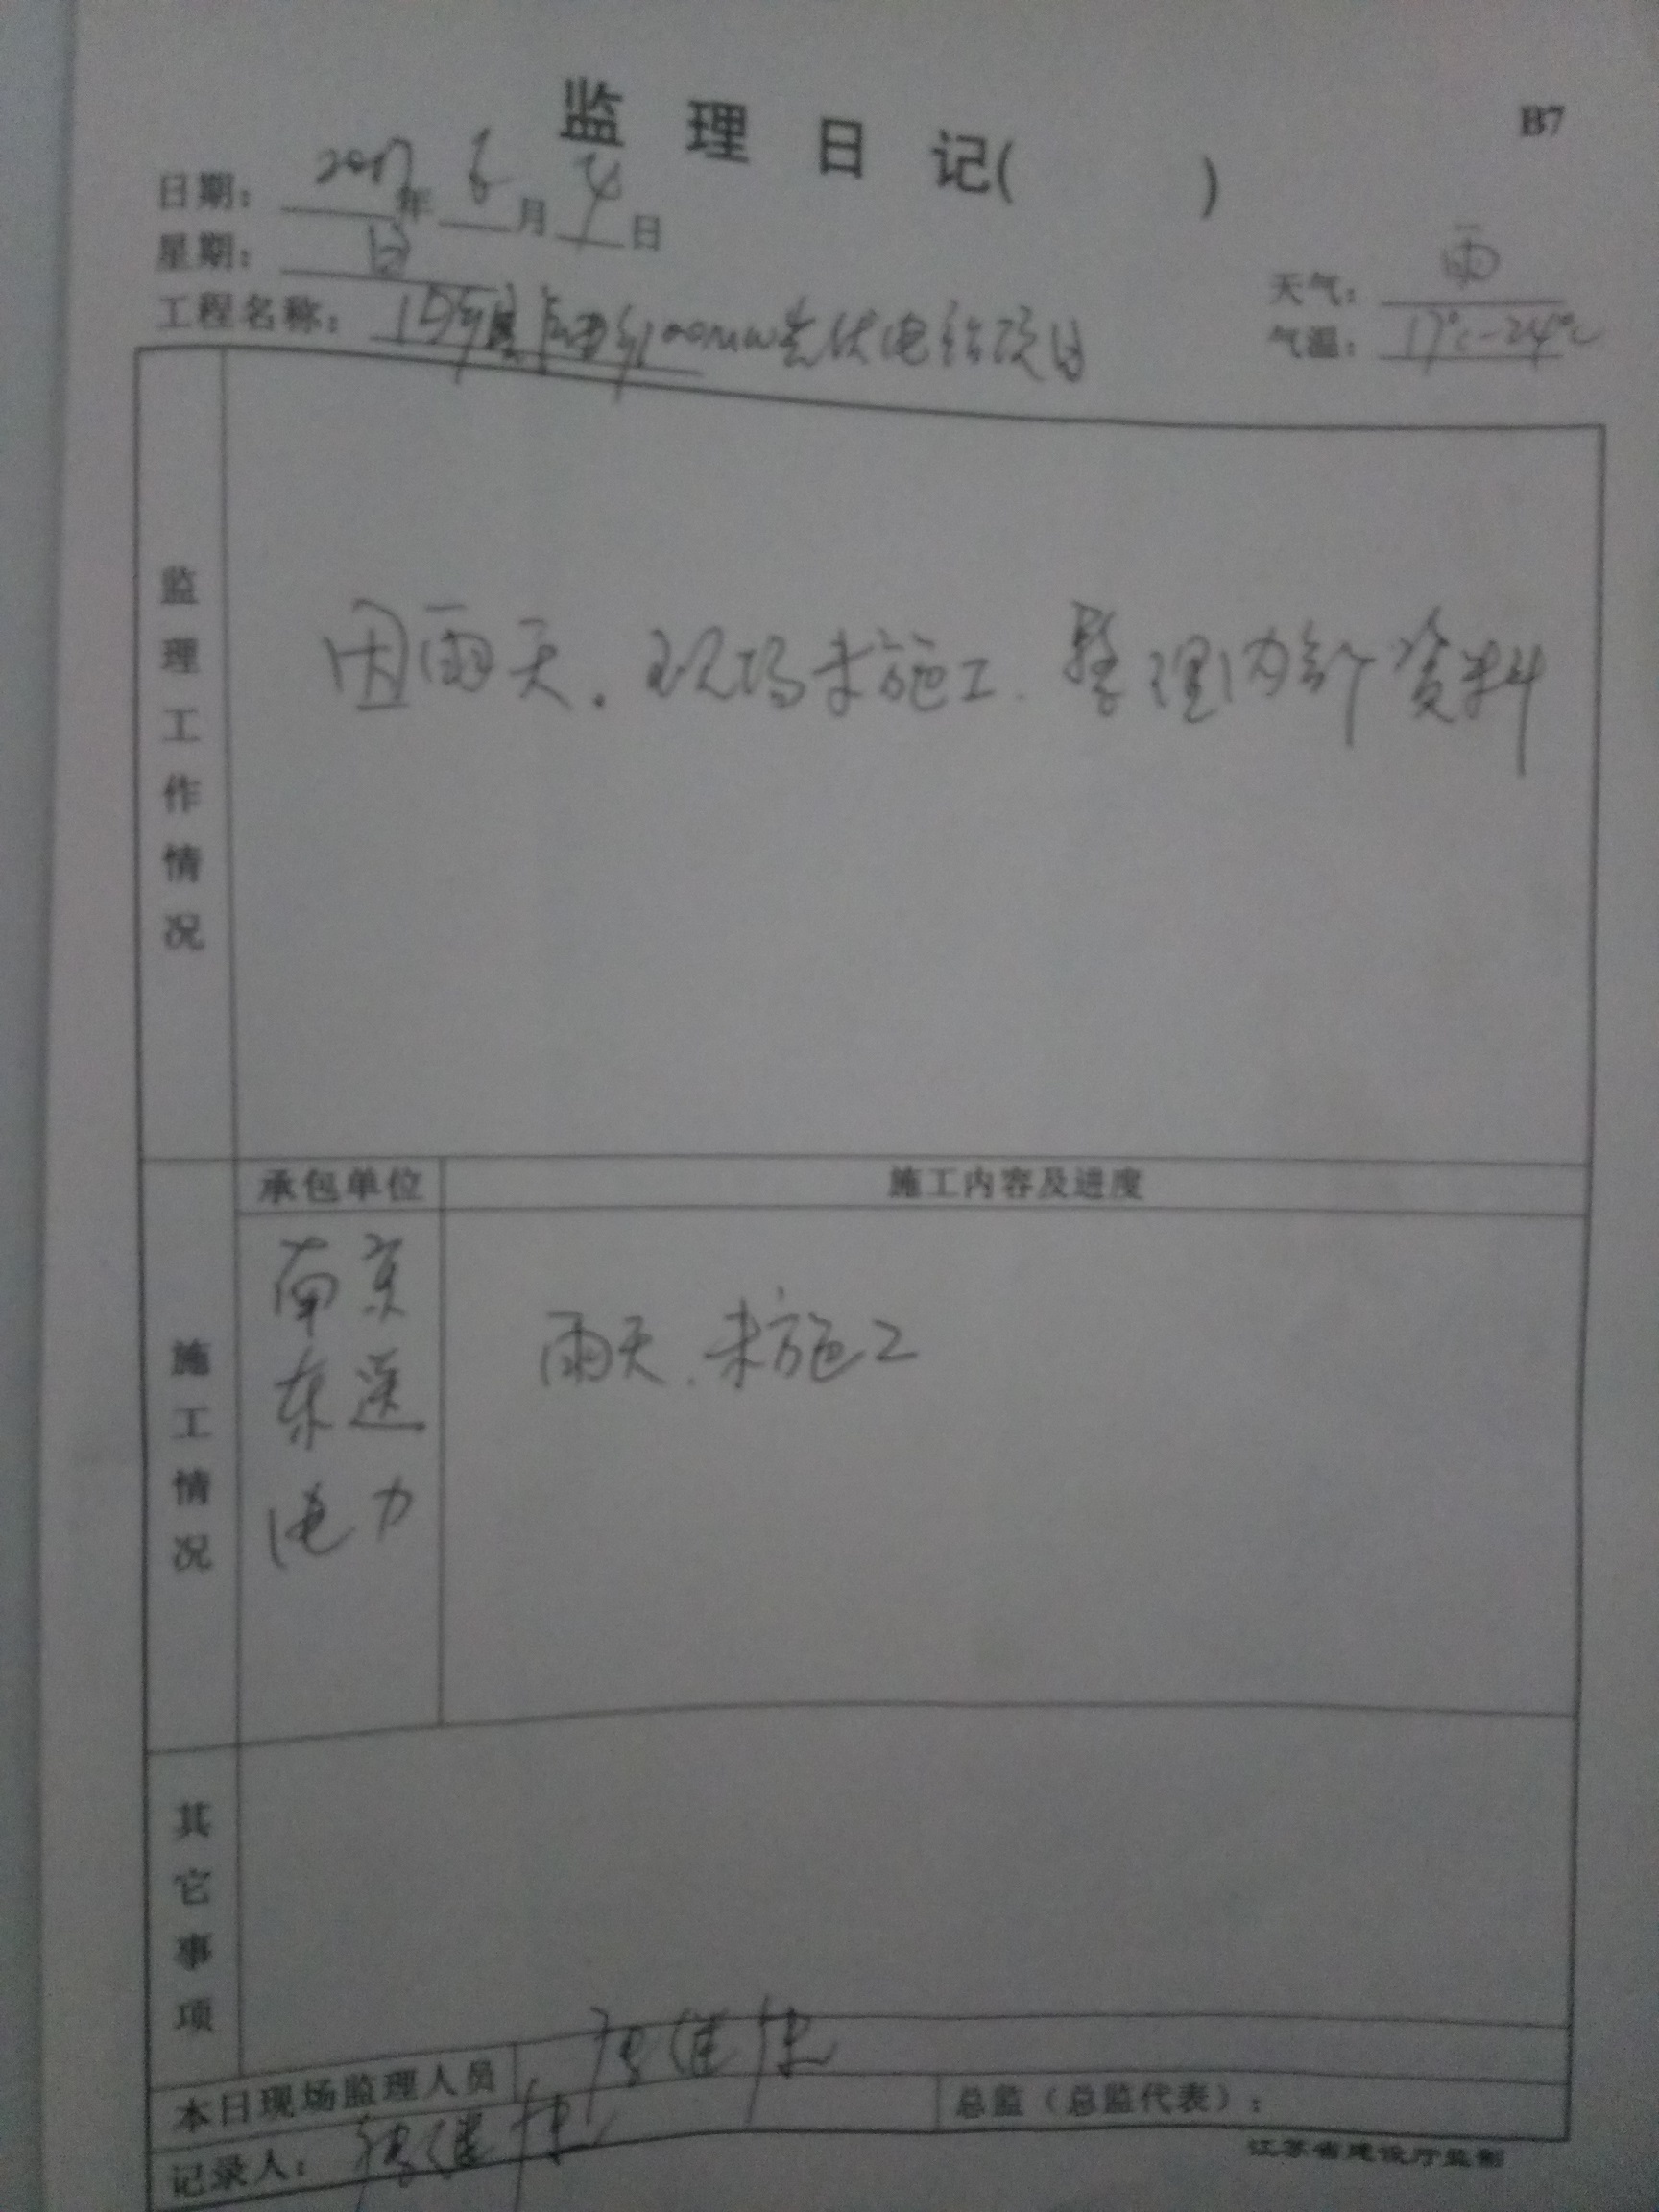 B7
监理日记( )
日期：2017年6月4日
星期：日
天气：雨
工程名称：100MW光伏电站项目
气温：17℃-24℃
监理工作情况
因雨天.现场未施工.整理内部资料
施工情况
承包单位
施工内容及进度
南京
东送
电力
雨天.未施工
其它事项
本日现场监理人员
记录人：
总监（总监代表）：
江苏省建设厅监制